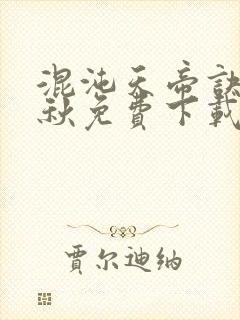 混沌天帝訣
秋免費下載
賈尔迪纳